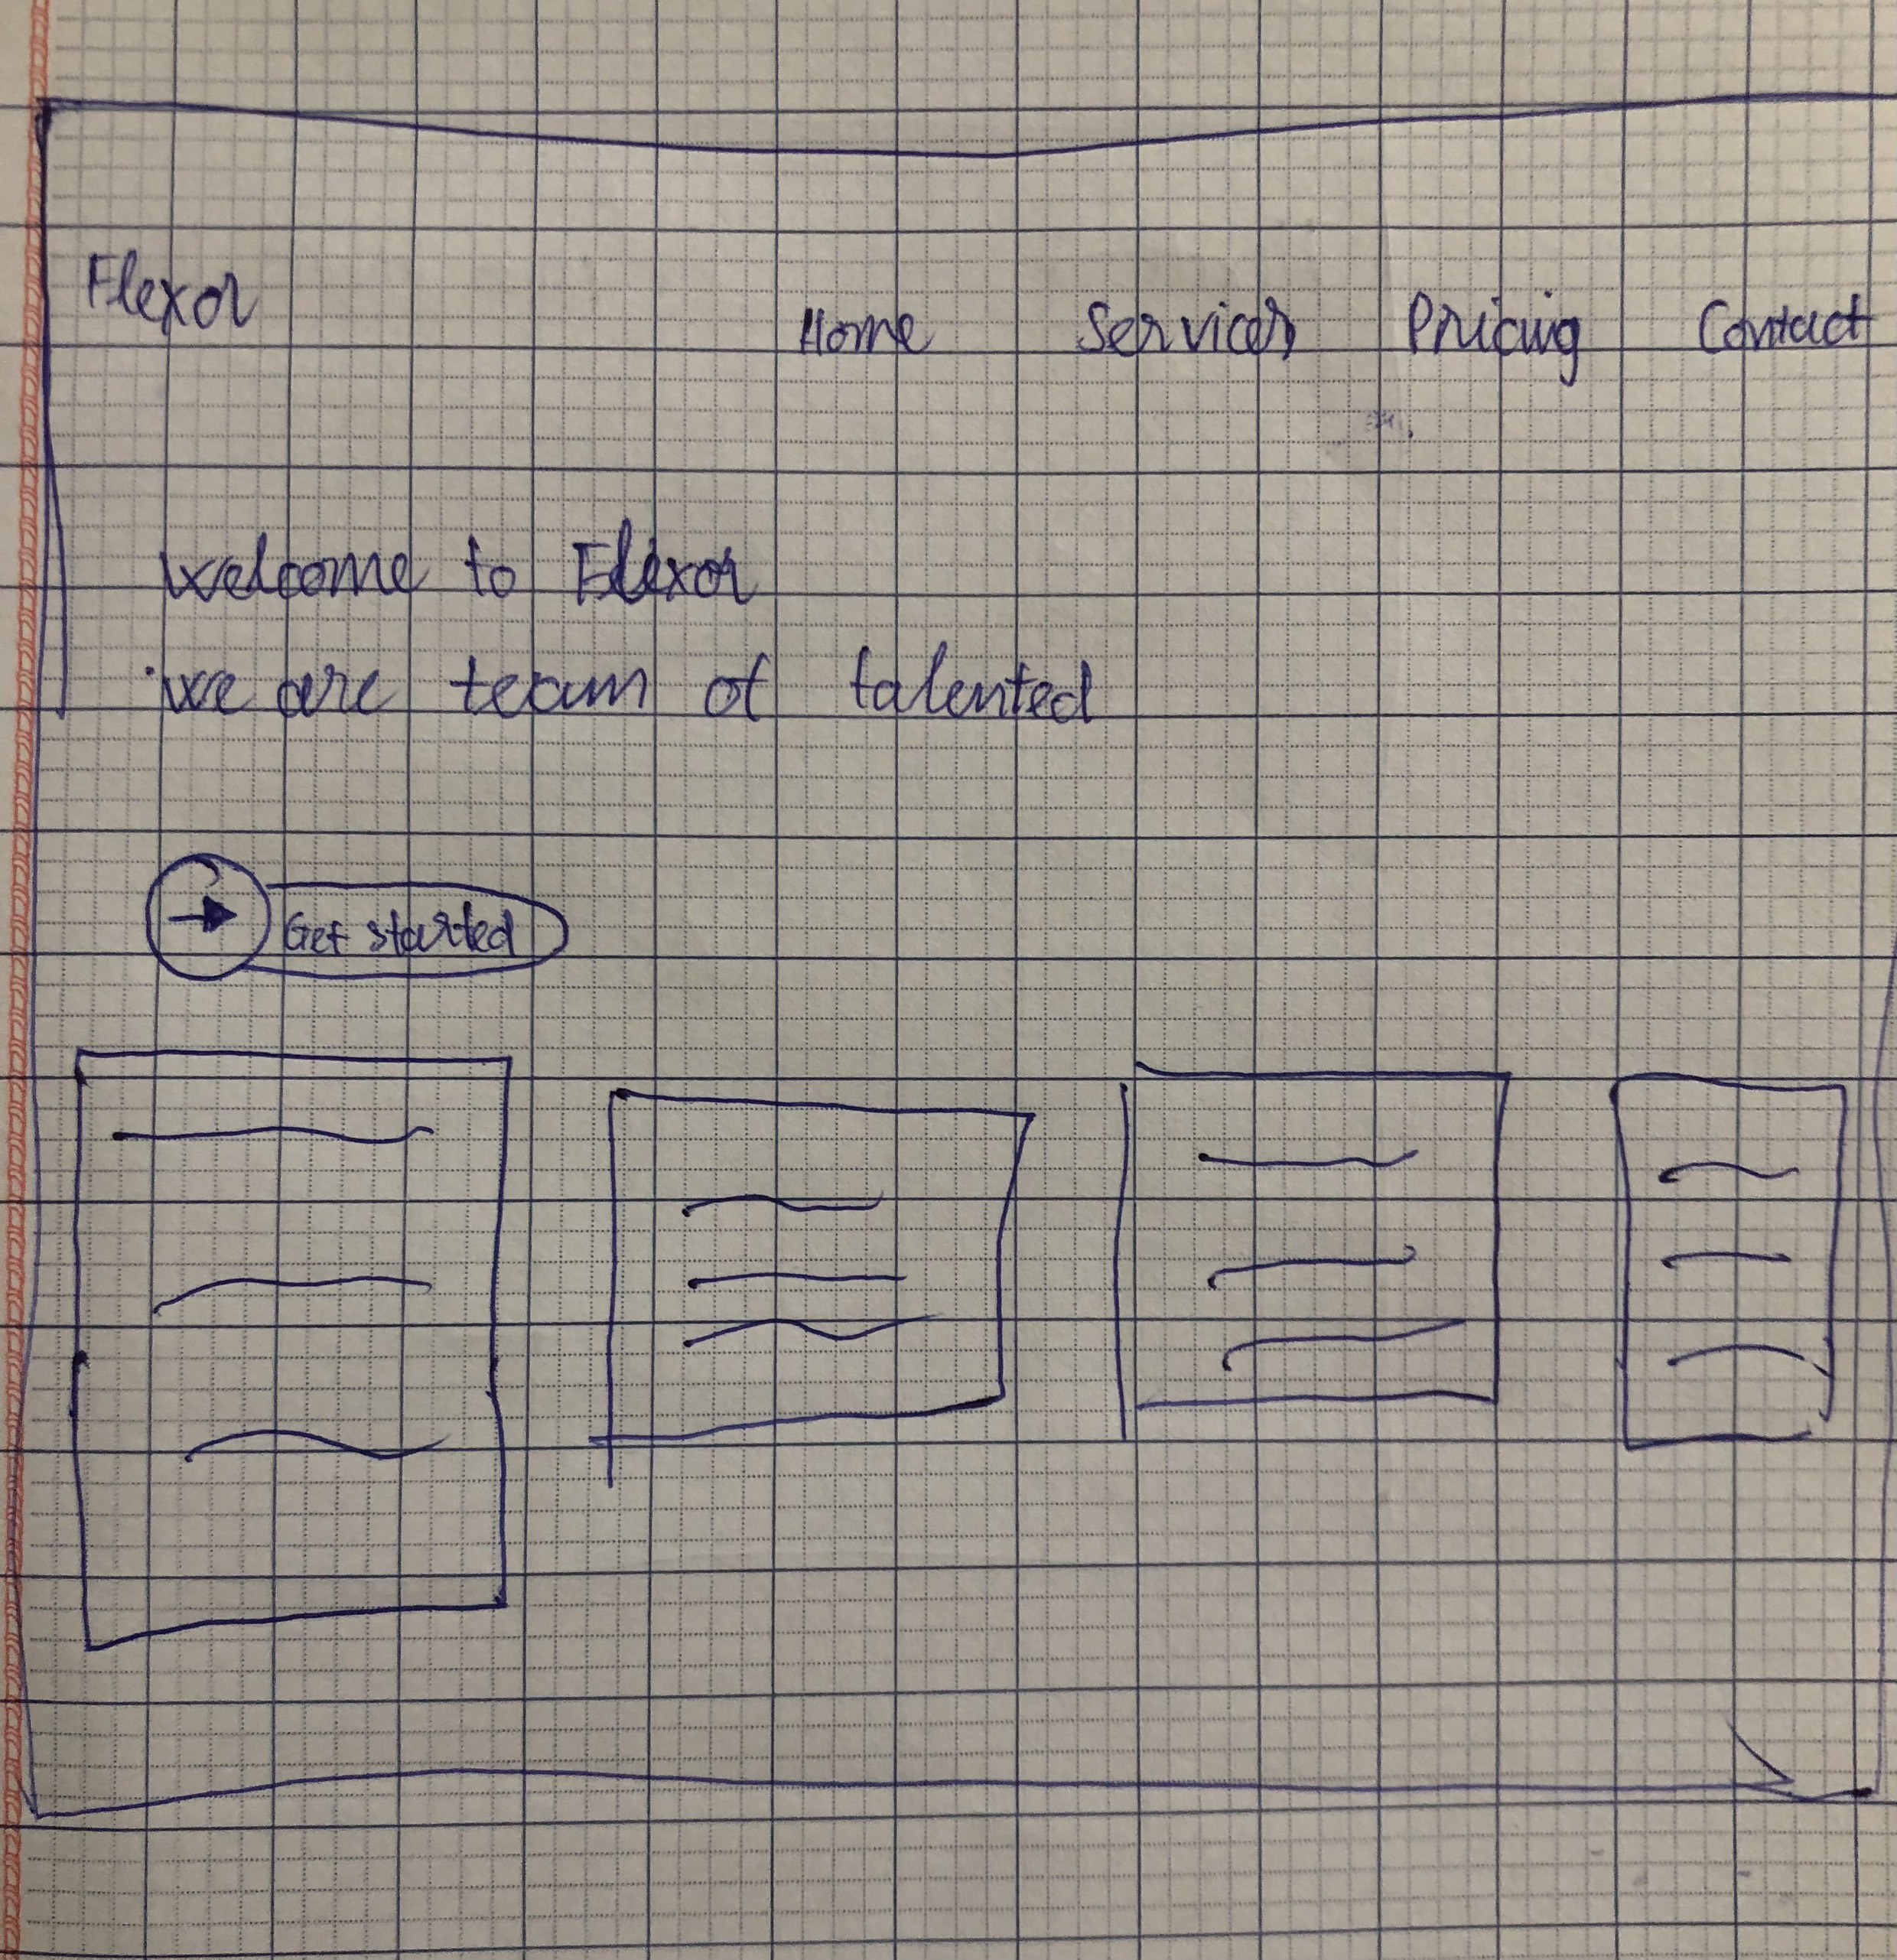 Flexor
Home Services Pricing Contact
welcome to Flexor
we are team of talented
Get started